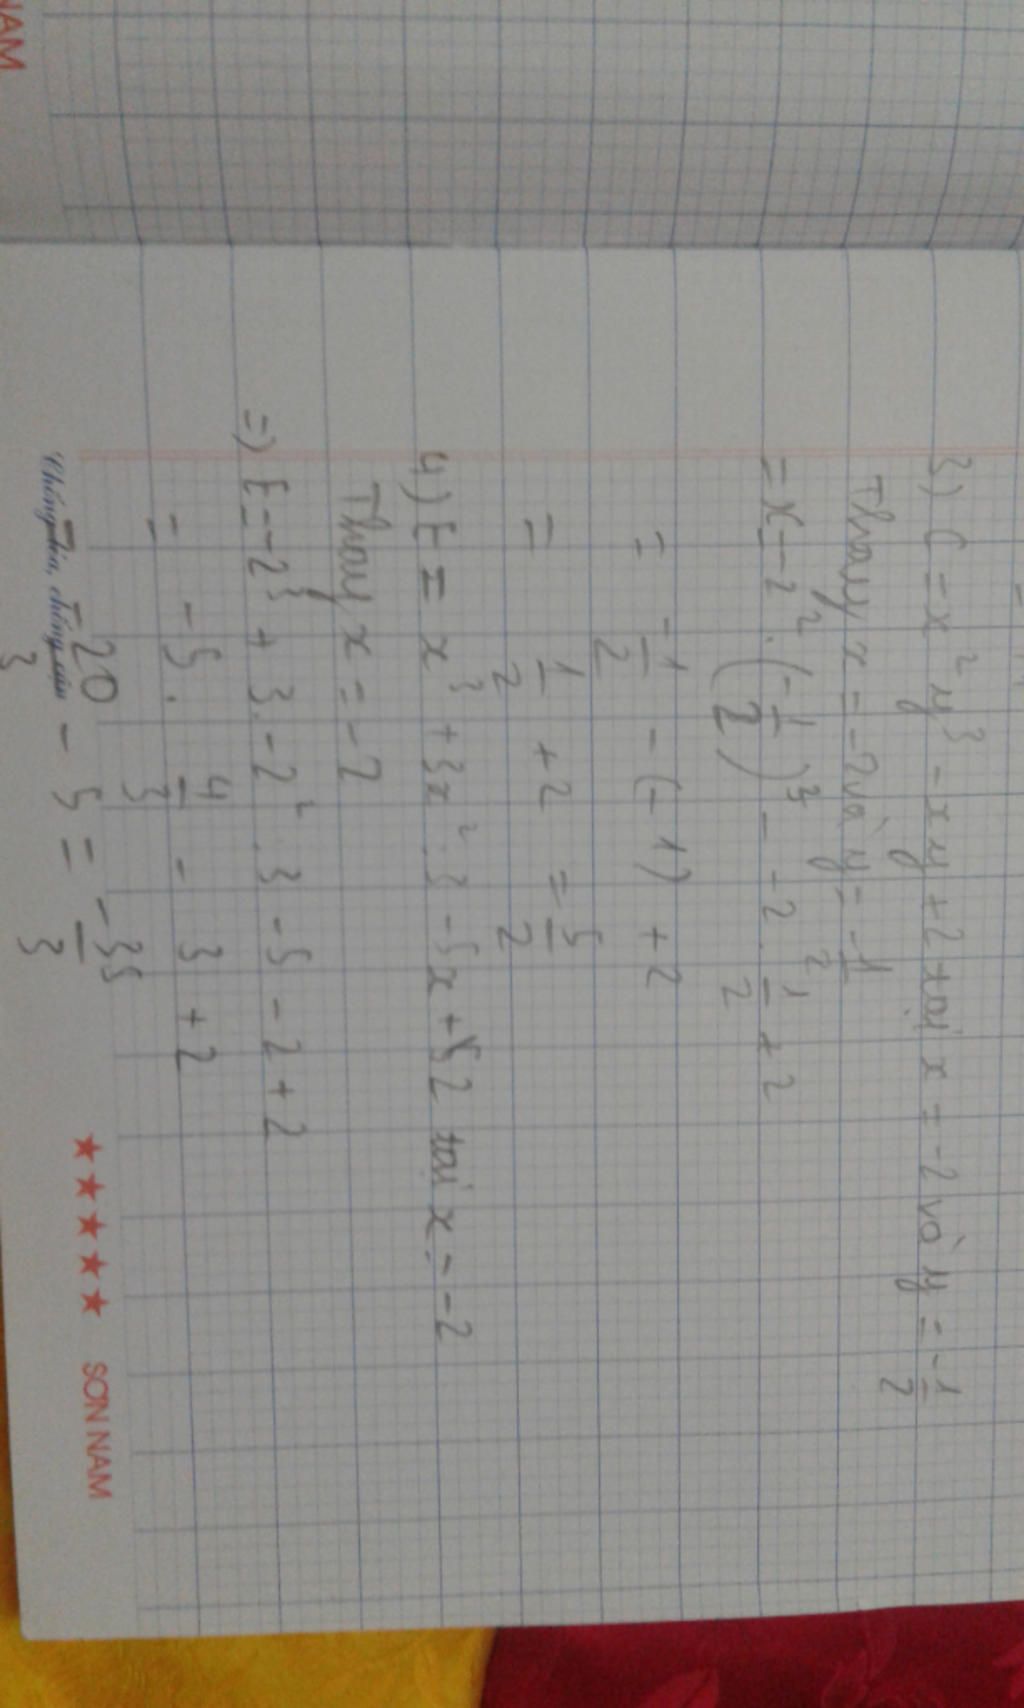 3) C = x² y³ - xy + 2 tại x = -2 và y = -1/2
Thay x = -2 và y = -1/2
= x - 2². (-1/2)³ - -2. 1/2 + 2
= -1/2 - (-1) + 2
= 1/2 + 2 = 5/2
4) E = x³ + 3x². 3 - 5x + 2 tại x = -2
Thay x = -2
=> E = -2³ + 3. -2². 3 - 5 - 2 + 2
= -5. 4/3 - 3 + 2
= -20/3 - 5 = -35/3
★★★★★ SƠN NAM
NAM